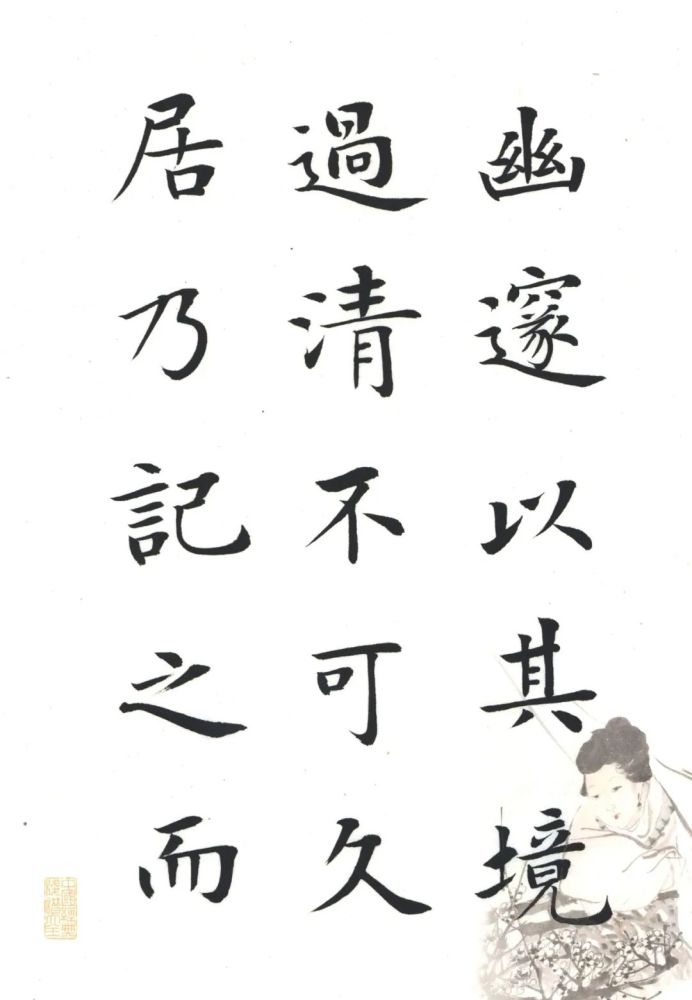 幽邃以其境
過清不可久
居乃記之而